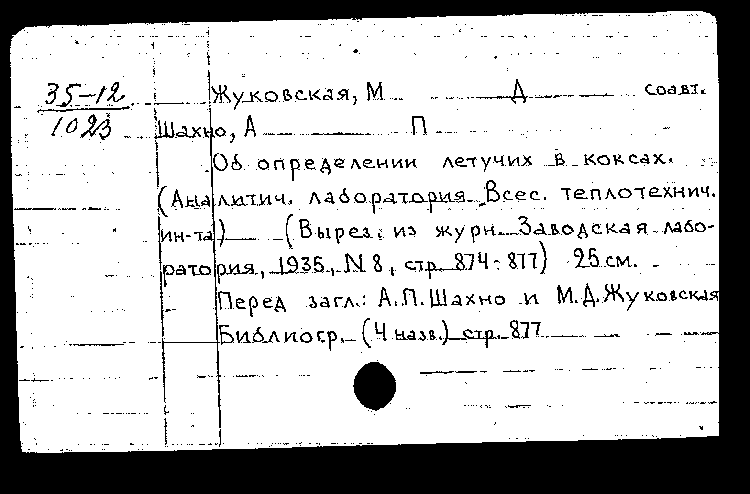 35-12
1023
Жуковская, М Д соавт.
Шахно, А П
Об определении летучих в коксах.
(Аналитич. лаборатория Всес. теплотехнич.
ин-та) (Вырез. из журн. Заводская лабо-
ратория, 1935, N 8, стр. 874-877) 25 см.
Перед загл.: А.П. Шахно и М.Д. Жуковская
Библиогр. (4 назв.) стр. 877